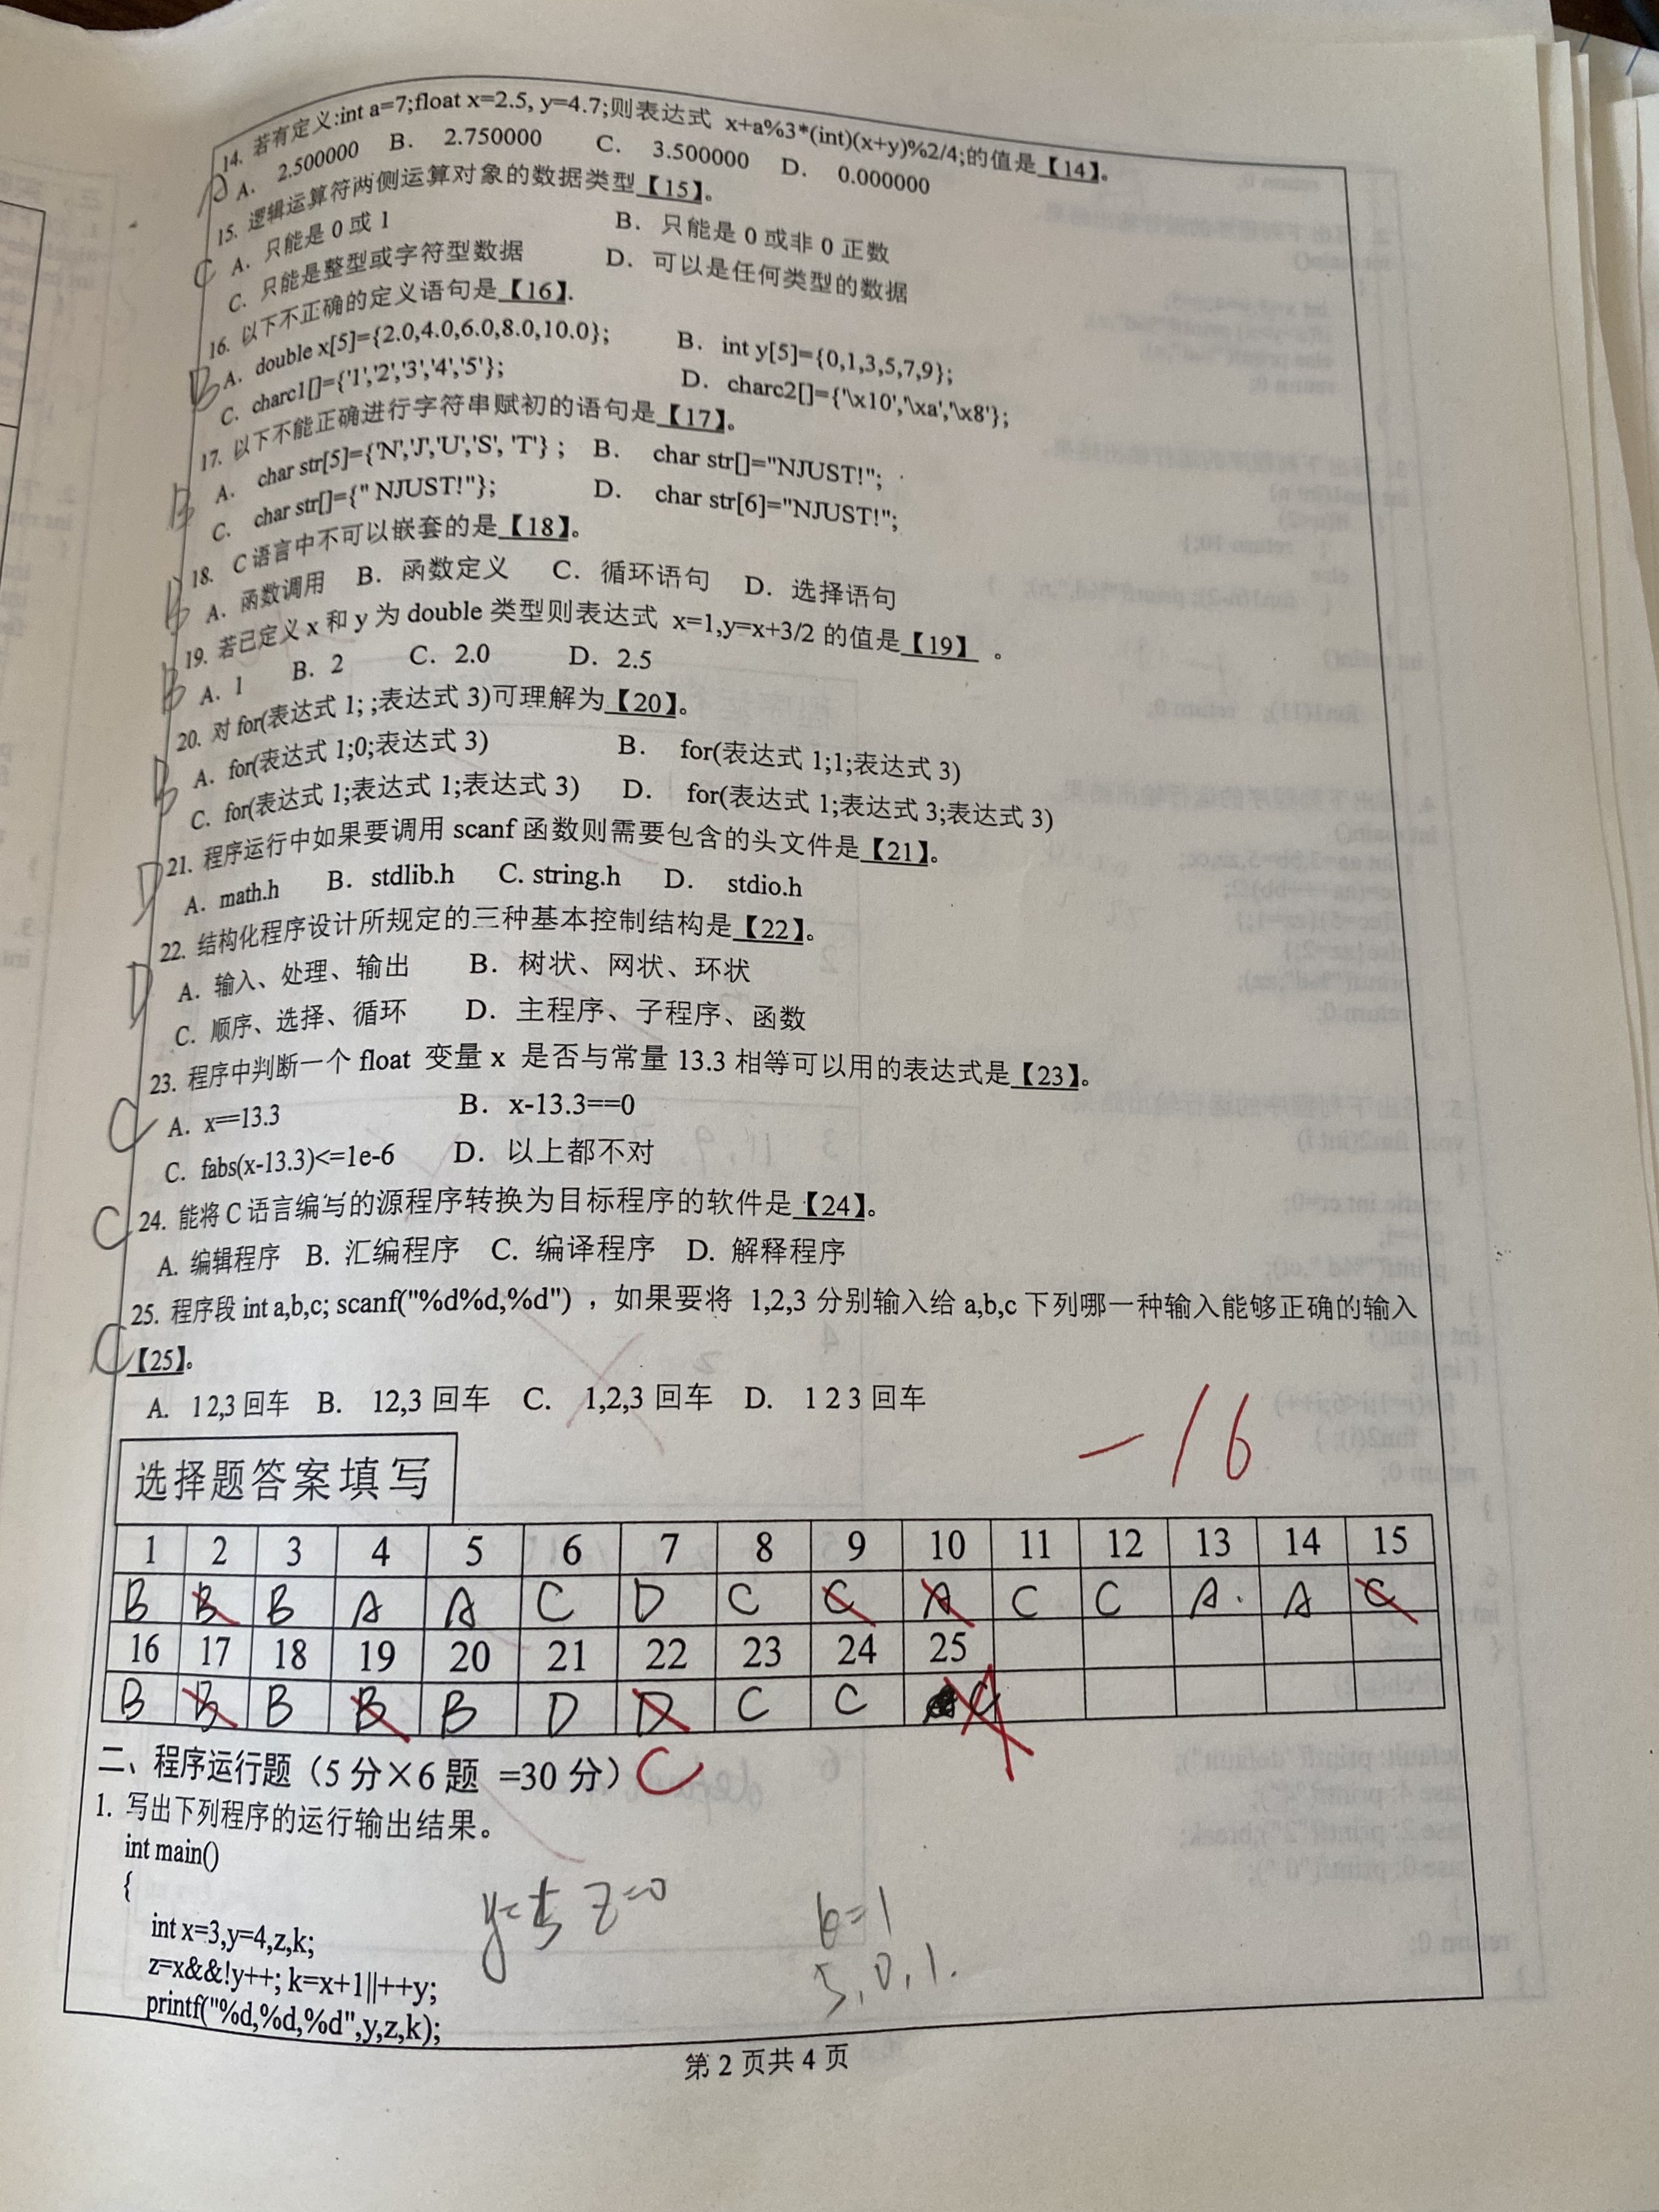 14. 若有定义:int a=7;float x=2.5, y=4.7;则表达式 x+a%3*(int)(x+y)%2/4;的值是【14】。
A. 2.500000 B. 2.750000 C. 3.500000 D. 0.000000
15. 逻辑运算符两侧运算对象的数据类型【15】。
A. 只能是 0 或 1 B. 只能是 0 或非 0 正数
C C. 只能是整型或字符型数据 D. 可以是任何类型的数据
16. 以下不正确的定义语句是【16】.
B A. double x[5]={2.0,4.0,6.0,8.0,10.0}; B. int y[5]={0,1,3,5,7,9};
C. charc1[]={'1','2','3','4','5'}; D. charc2[]={'\x10','\xa','\x8'};
17. 以下不能正确进行字符串赋初的语句是【17】。
B A. char str[5]={'N','J','U','S', 'T'} ; B. char str[]="NJUST!";
C. char str[]={" NJUST!"}; D. char str[6]="NJUST!";
18. C 语言中不可以嵌套的是【18】。
B A. 函数调用 B. 函数定义 C. 循环语句 D. 选择语句
19. 若已定义 x 和 y 为 double 类型则表达式 x=1,y=x+3/2 的值是【19】 。
B A. 1 B. 2 C. 2.0 D. 2.5
20. 对 for(表达式 1; ;表达式 3)可理解为【20】。
B A. for(表达式 1;0;表达式 3) B. for(表达式 1;1;表达式 3)
C. for(表达式 1;表达式 1;表达式 3) D. for(表达式 1;表达式 3;表达式 3)
21. 程序运行中如果要调用 scanf 函数则需要包含的头文件是【21】。
D A. math.h B. stdlib.h C. string.h D. stdio.h
22. 结构化程序设计所规定的三种基本控制结构是【22】。
D A. 输入、处理、输出 B. 树状、网状、环状
C. 顺序、选择、循环 D. 主程序、子程序、函数
23. 程序中判断一个 float 变量 x 是否与常量 13.3 相等可以用的表达式是【23】。
C A. x==13.3 B. x-13.3==0
C. fabs(x-13.3)<=1e-6 D. 以上都不对
C 24. 能将 C 语言编写的源程序转换为目标程序的软件是【24】。
A. 编辑程序 B. 汇编程序 C. 编译程序 D. 解释程序
25. 程序段 int a,b,c; scanf("%d%d,%d") ，如果要将 1,2,3 分别输入给 a,b,c 下列哪一种输入能够正确的输入
C 【25】。
A. 1 2,3 回车 B. 12,3 回车 C. 1,2,3 回车 D. 1 2 3 回车
-16
选择题答案填写
1 2 3 4 5 6 7 8 9 10 11 12 13 14 15
B B B A A C D C C A C C A. A C
16 17 18 19 20 21 22 23 24 25
B B B B B D D C C C
二、程序运行题（5 分×6 题 =30 分） C
1. 写出下列程序的运行输出结果。
int main()
{
y=5 z=0 k=1
int x=3,y=4,z,k;
z=x&&!y++; k=x+1||++y;
5,0,1.
printf("%d,%d,%d",y,z,k);
第 2 页共 4 页